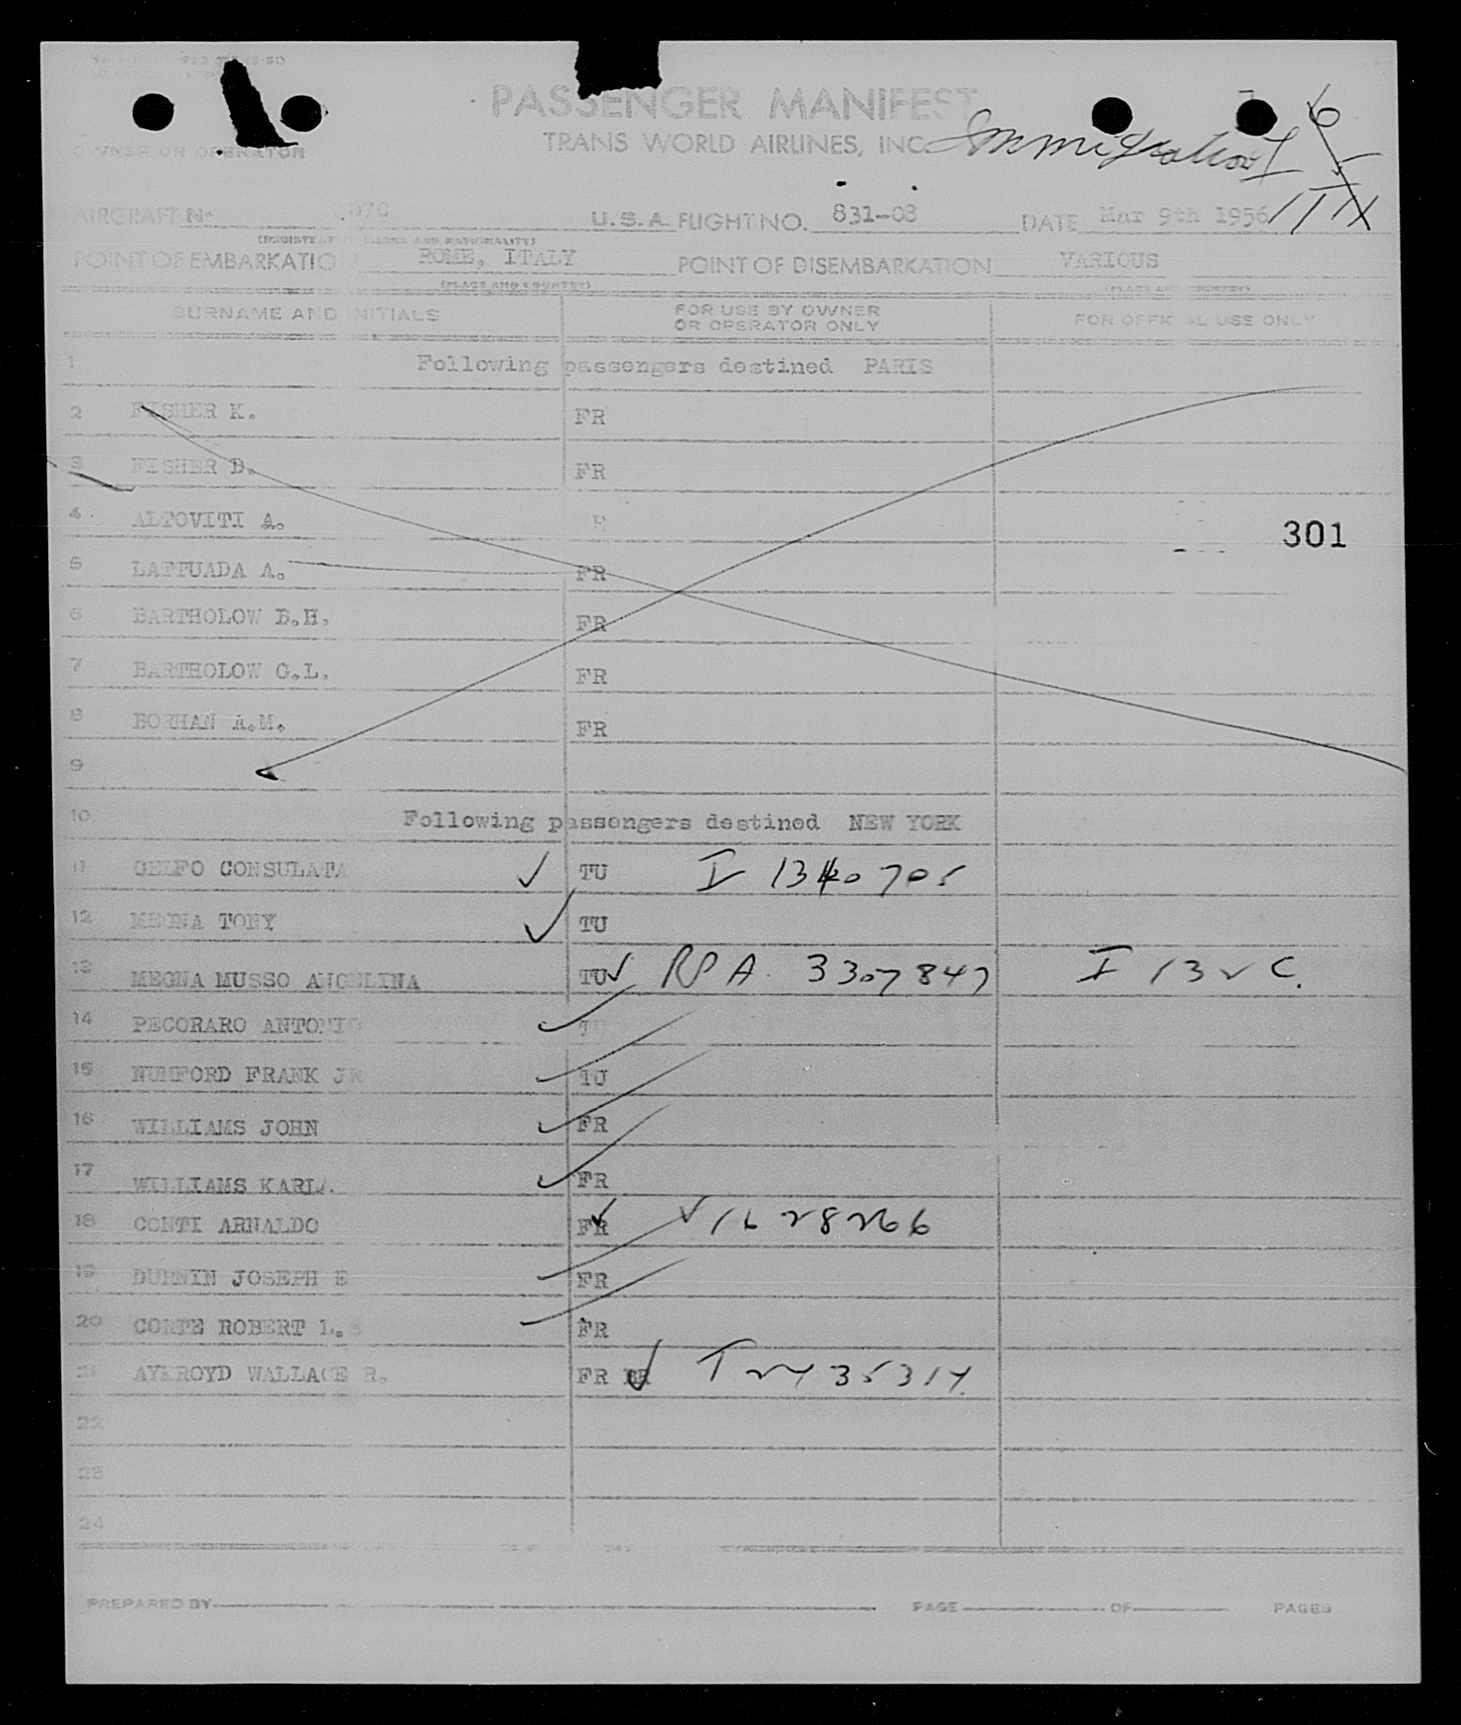 PASSENGER MANIFEST
OWNER OR OPERATOR TRANS WORLD AIRLINES, INC. Immigration
AIRCRAFT No U.S.A. FLIGHT NO. 831-08 DATE Mar 9th 1956
POINT OF EMBARKATION ROME, ITALY POINT OF DISEMBARKATION VARIOUS
(PLACE AND COUNTRY) (PLACE AND COUNTRY)
SURNAME AND INITIALS FOR USE BY OWNER OR OPERATOR ONLY FOR OFFICIAL USE ONLY
1 Following passengers destined PARIS
2 FISHER K. FR
3 FISHER D. FR
4 ALTOVITI A.
301
5 LATTUADA A. FR
6 BARTHOLOW B.H. FR
7 BARTHOLOW G.L. FR
8 BORHAN A.M. FR
9
10 Following passengers destined NEW YORK
11 GELFO CONSULATA TU
12 MEGNA TONY TU
13 MEGNA MUSSO ANGELINA TU 3307847
14 PECORARO ANTONIO
15 MUMFORD FRANK JR TU
16 WILLIAMS JOHN FR
17 WILLIAMS KARL FR
18 CONTI ARNALDO FR
19 DURNIN JOSEPH E FR
20 CONTE ROBERT L. FR
21 AYKROYD WALLACE R. FR
22
23
24
PREPARED BY PAGE OF PAGES